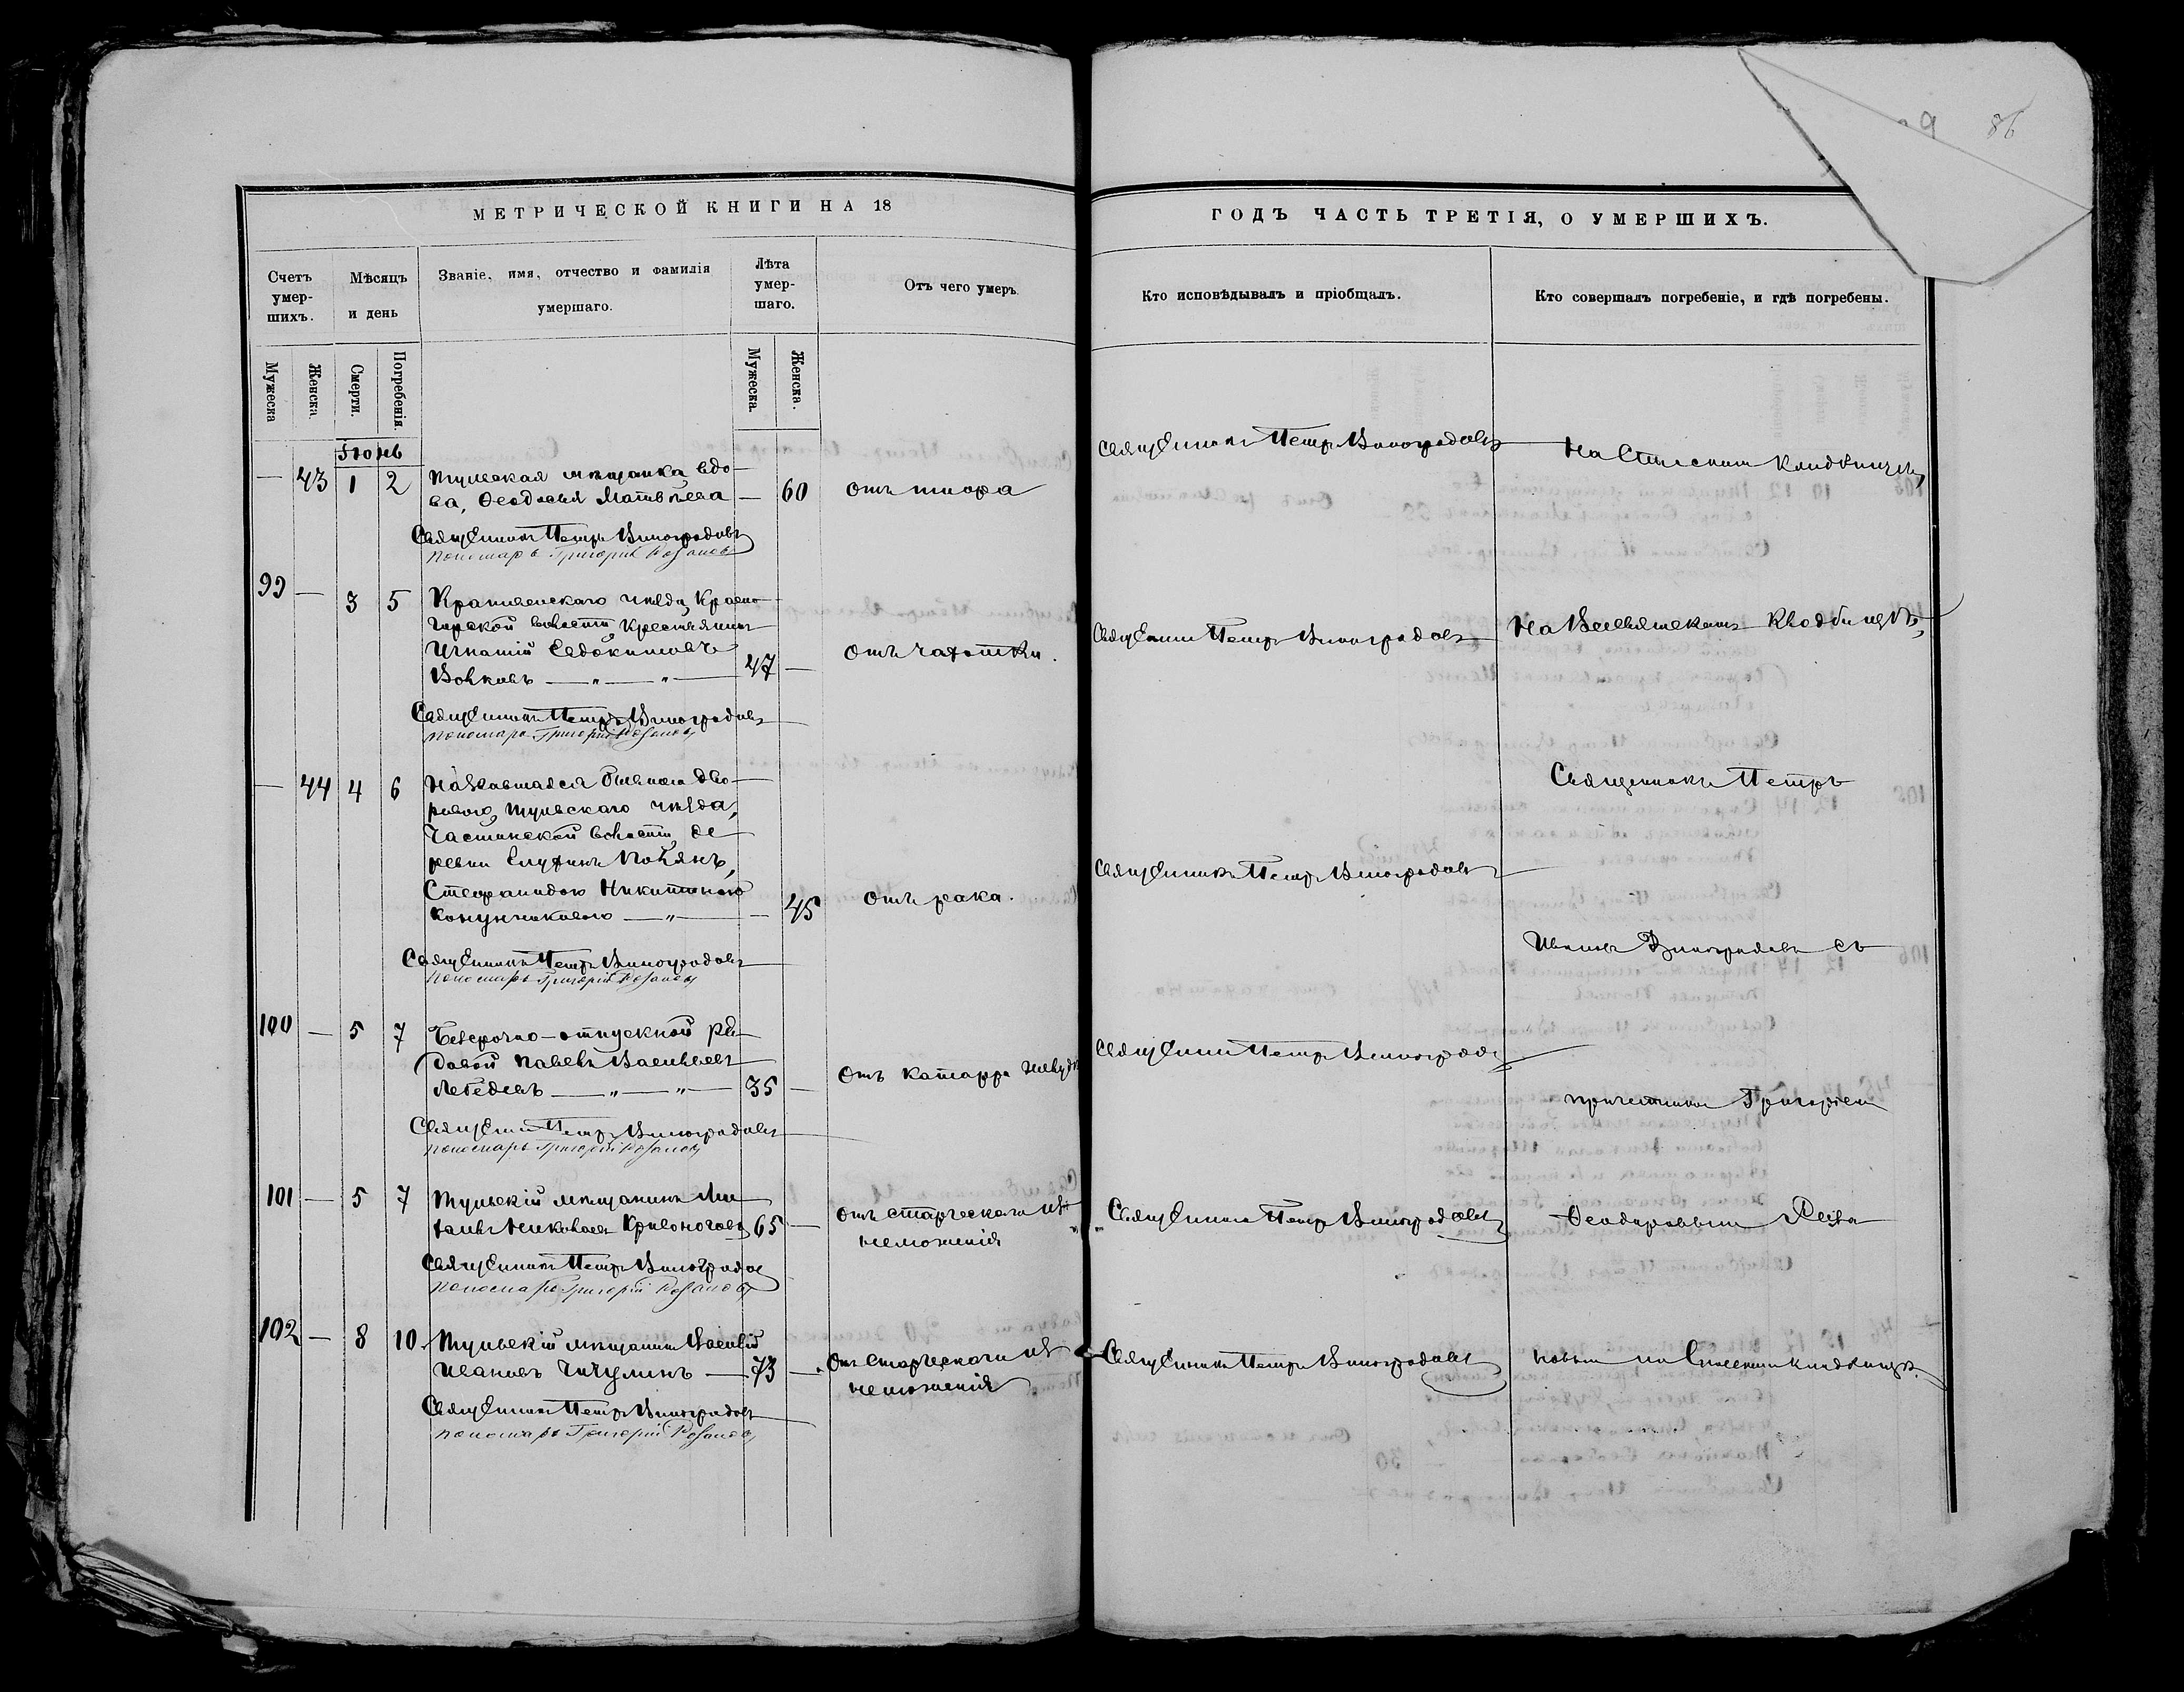 86
МЕТРИЧЕСКОЙ КНИГИ НА 18
ГОДЪ ЧАСТЬ ТРЕТІЯ, О УМЕРШИХЪ.
Счетъ умер-шихъ.
Мѣсяцъ и день
Званіе, имя, отчество и фамилія умершаго.
Лѣта умер-шаго.
Отъ чего умеръ
Кто исповѣдывалъ и пріобщалъ.
Кто совершалъ погребеніе, и гдѣ погребены.
Мужеска
Женска.
Смерти.
Погребенія.
Мужеска.
Женска.
Іюнь
— 43 1 2 Тульская мѣщанка, вдо-
ва, Ѳеодосья Матвѣева — 60
Священникъ Петръ Виноградовъ
На Спасскомъ кладбищѣ,
Священникъ Петръ Виноградовъ
пономарь Григорій Розановъ
99 — 3 5 Крапивенскаго уѣзда, Красно-
волости, крестьянинъ
Игнатій Евдокимовъ
Волковъ — „ — „ — 47 —
Отъ чахотки.
Священникъ Петръ Виноградовъ
На Всесвятскомъ кладбищѣ,
Священникъ Петръ Виноградовъ
пономарь Григорій Розановъ
— 44 4 6
Тульскаго уѣзда,
волости, де-
ревни Полянъ,
Степанидою Никитиною
— „ — — 45
Отъ рака.
Священникъ Петръ Виноградовъ
Священникъ Петръ
Священникъ Петръ Виноградовъ
пономарь Григорій Розановъ
Ивановъ Виноградовъ съ
100 — 5 7 Безсрочно-отпускной ря-
довой Павелъ Васильевъ
Лебедевъ — „ — „ — 35 —
Отъ катарра желудк
Священникъ Петръ Виноградов
причетникомъ Григоріемъ
Священникъ Петръ Виноградовъ
пономарь Григорій Розановъ
101 — 5 7 Тульскій мѣщанинъ Ми-
хаилъ Николаевъ Кривоноговъ 65 —
Отъ старческаго из-
неможенія
Священникъ Петръ Виноградовъ
Ѳеодоровымъ
Священникъ Петръ Виноградов
пономарь Григорій Розановъ
102 — 8 10 Тульскій мѣщанинъ Василій
Ивановъ Чичулинъ — 73 —
Отъ старческаго из-
неможенія
Священникъ Петръ Виноградовъ
новымъ на Спасскомъ кладбищѣ.
Священникъ Петръ Виноградовъ
пономарь Григорій Розановъ